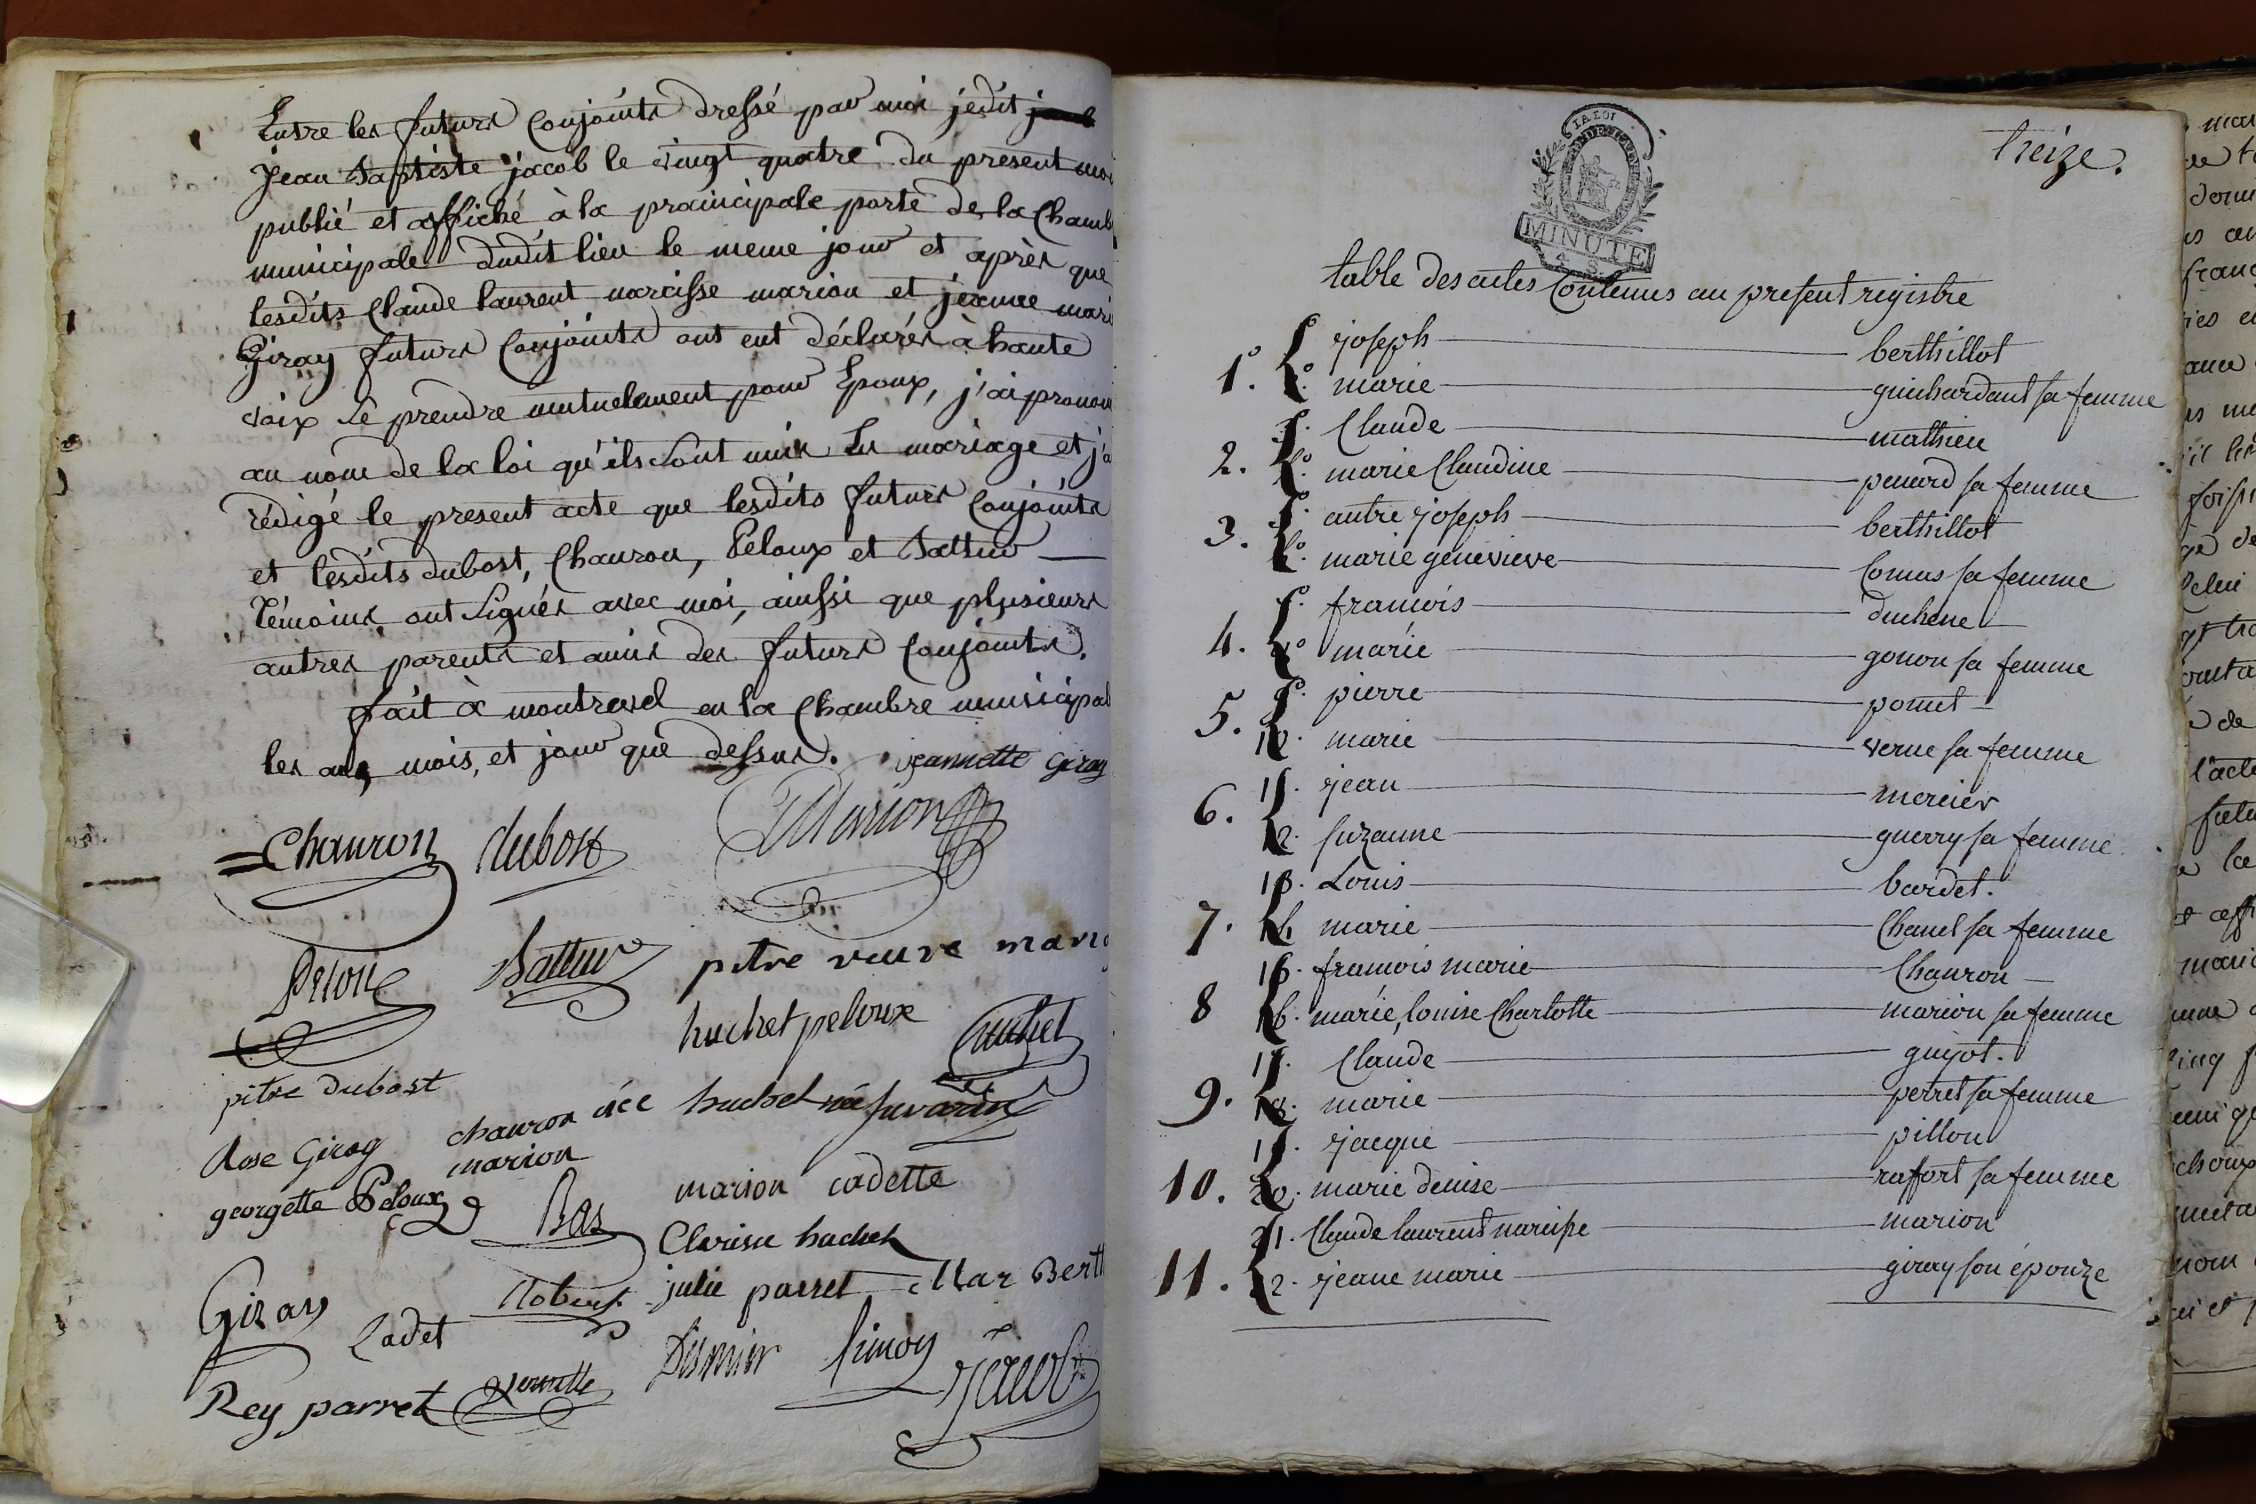 Entre les futurs conjoints dressé par moi jedit
jean Baptiste jacob le vingt quatre du present moi
publié et affiché à la prainicipale porte de la chamb
municipale dudit lieu le meme jour et après que
lesdits Claude laurent narcisse marion et jeanne mari
Giray futurs conjoints ont eut déclarés à haute
voix se prendre mutuelement pour Epoux, j'ai pronon
au nom de la loi qu'ils sont unis En mariage et j'a
rédigé le present acte que lesdits futurs conjoints
et lesdits dubost, Chauron, Peloux et Battur
témoins ont signés avec moi, ainssi que plusieurs
autres parents et amis des futurs conjoints.
fait à montrevel en la chambre municipal
les an, mois, et jour que dessus. jeannette Giray
Chauron dubost Marion
Peloux Battur pitre veuve mario
huchet peloux huchet
pitre Dubost
chauron née huchet née
Rose Giray marion
georgette Peloux Bas marion cadette
Clarisse huchet
Giray Cadet Robert julie parret Mar Berth
Rey parret simon jacob
LA LOI
MINUTE
4 S.
treize.
table des actes Contenus au present registre
1. joseph berthillot
marie guichardant sa femme
2. Claude mathieu
marie Claudine penard sa femme
3. autre joseph berthillot
marie genevieve Comas sa femme
4. francois duchene
marie gonon sa femme
5. pierre pomet
marie verne sa femme
6. 11. jean mercier
12. suzanne guerry sa femme
7. 13. Louis bardet.
14. marie Chanel sa femme
8 15. francois marie Chauron
16. marie, louise Charlotte marion sa femme
9. 17. Claude guyot.
18. marie perret sa femme
10. 19. jacque pillon
20. marie denise raffort sa femme
11. 21. Claude laurent narcisse marion
22. jeane marie giray son épouze